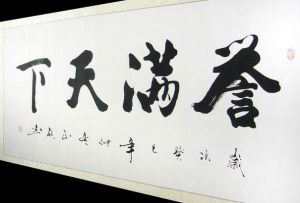 誉满天下
歲次癸巳年仲冬